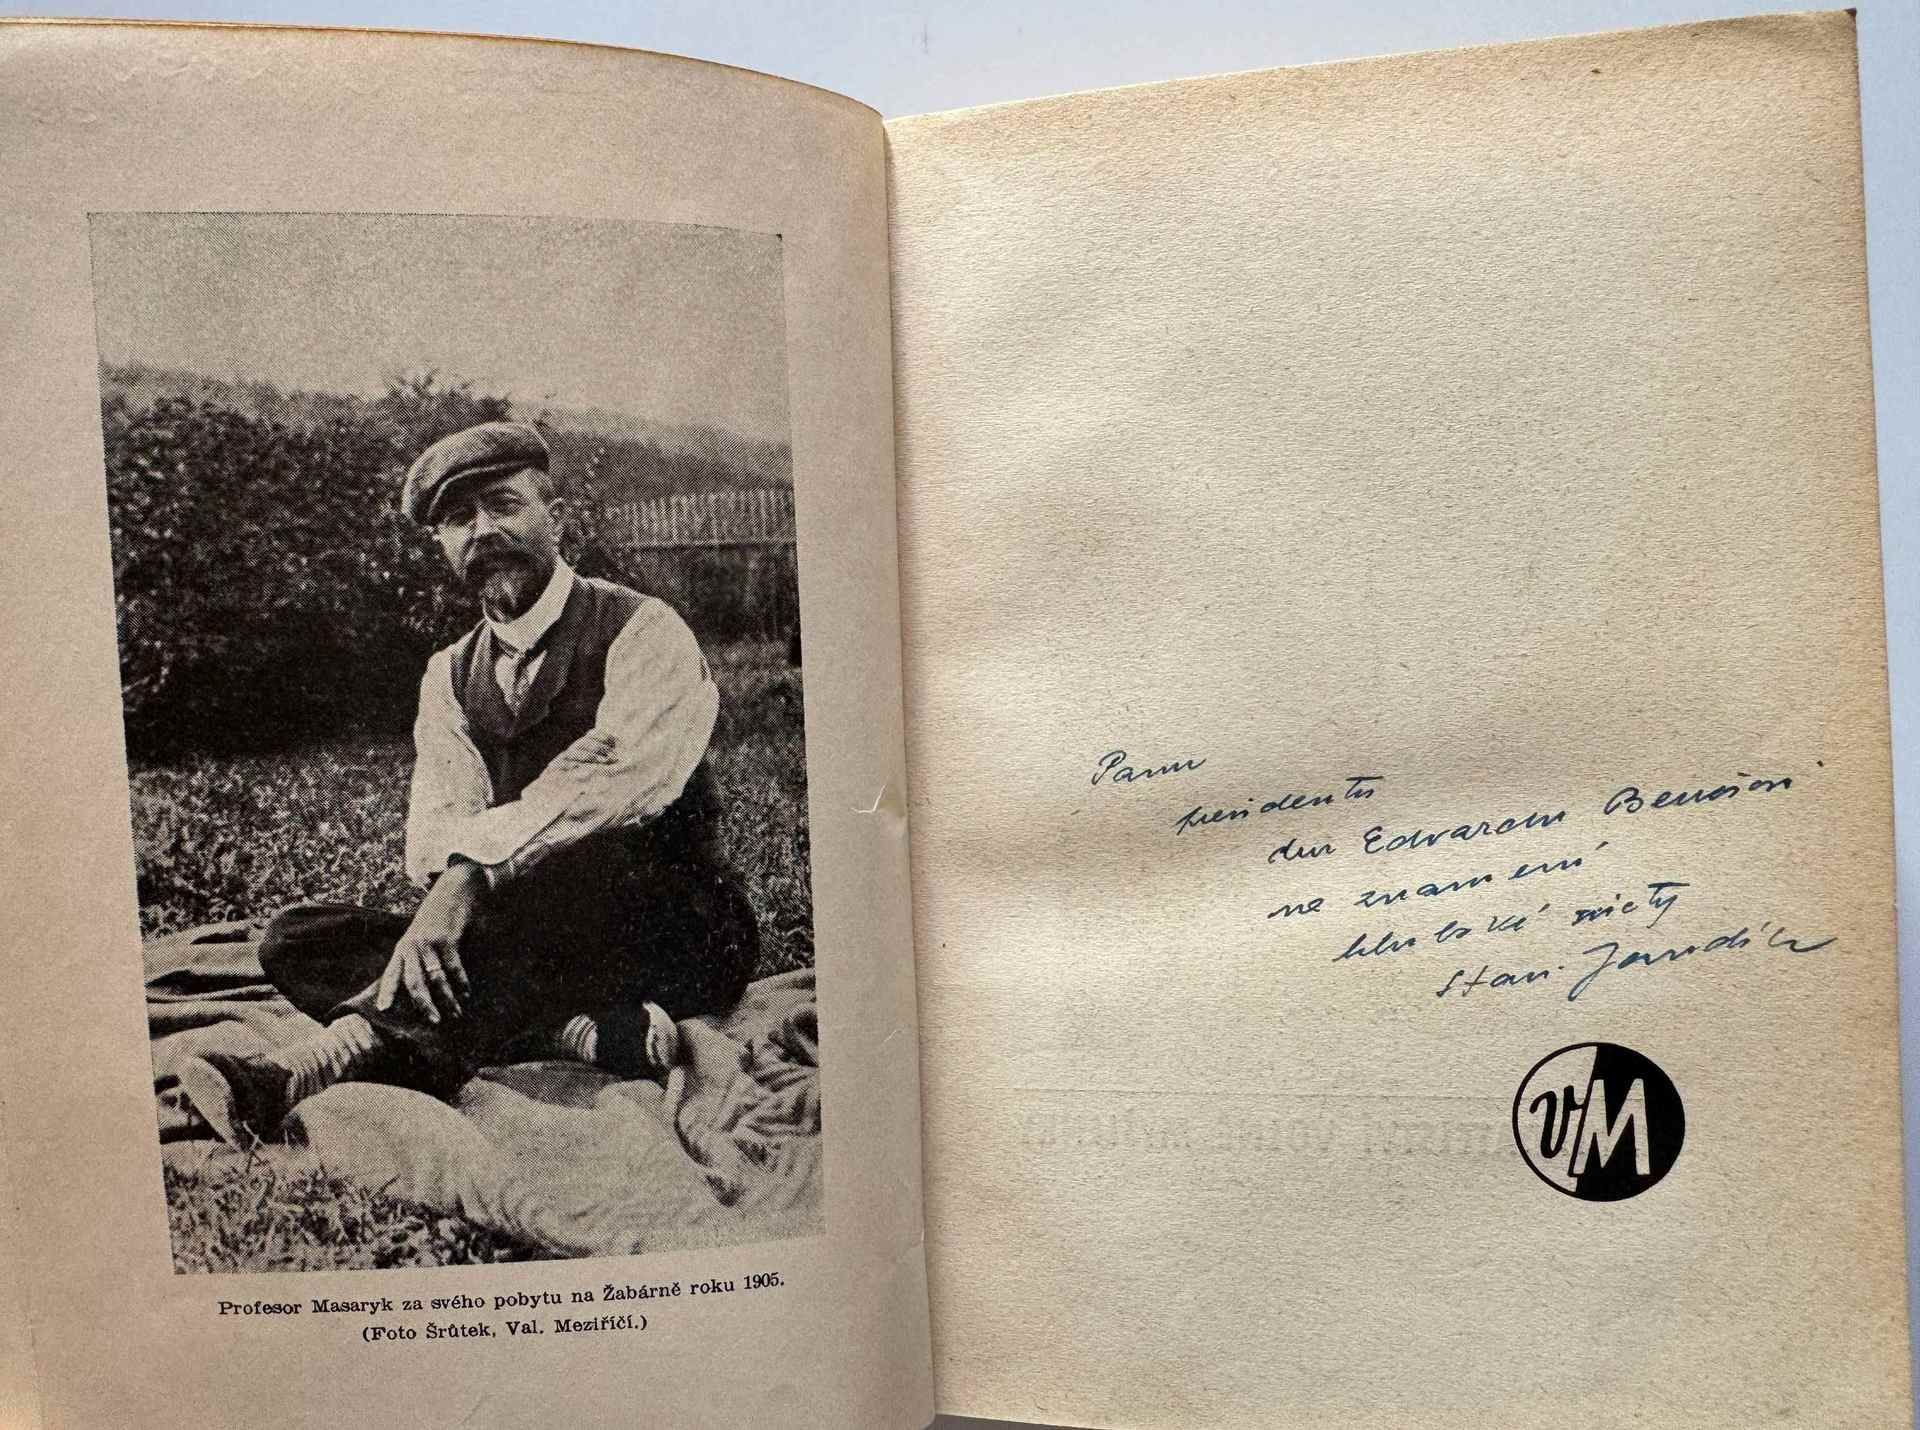 Profesor Masaryk za svého pobytu na Žabárně roku 1905.
(Foto Šrůtek, Val. Meziříčí.)
Panu
presidentu
dru Edvardu Benešovi
na znamení
hluboké úcty
Stan. Jandík
VM